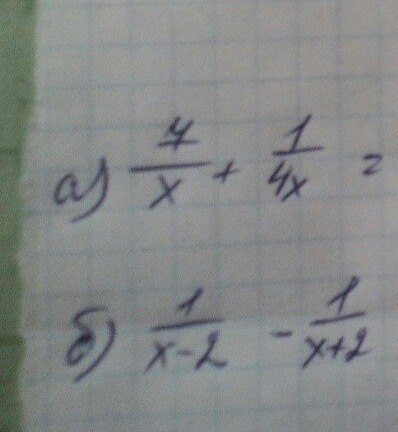 а) 4/x + 1/4x =
б) 1/x-2 - 1/x+2